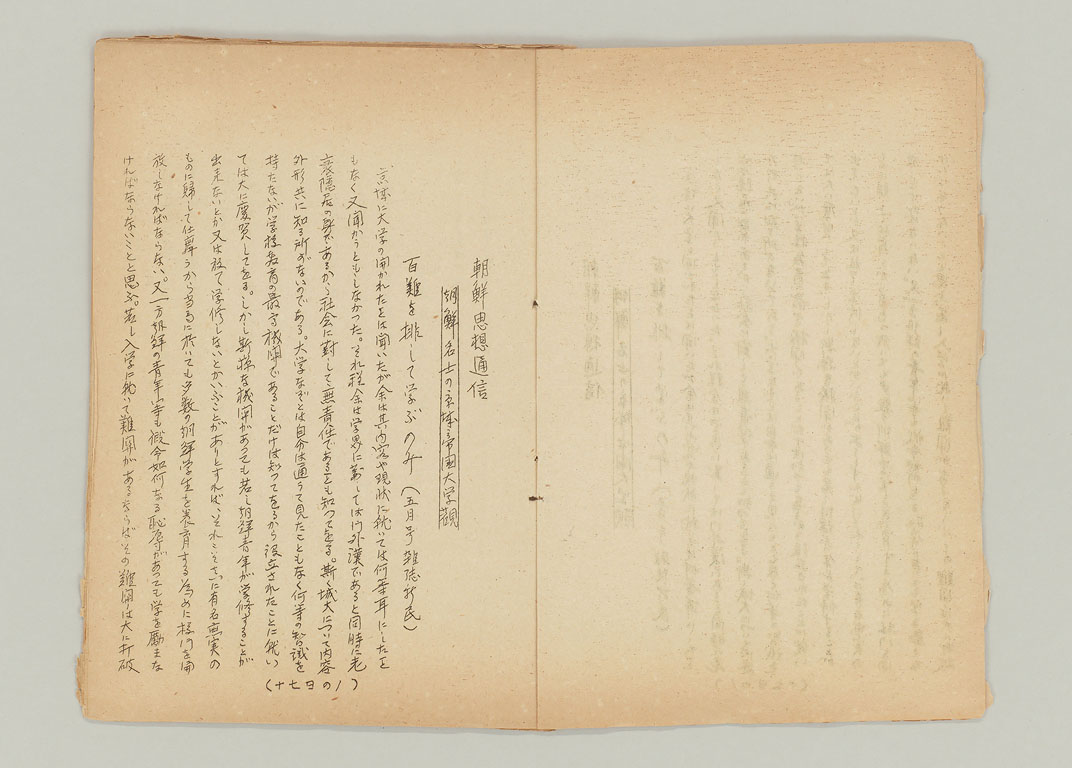 朝鮮思想通信
百難を排して学ぶのみ(五月号雑誌新民)
朝鮮名士の京城帝国大学観
京城に大学の開かれたとは聞いたが余は其内容や現状に就いては何等耳にしたこと
もなく又聞かうともしなかつた。それ程余は学界に対しては門外漢であると同時に老
衰隠居の身であるから社会に対して無責任であるとも知つてをる。斯く城大について内容
外形共に知る所がないのである。大学なぞとは自分は通うて見たこともなく何等の智識を
持たないが学校教育の最高機関であることだけは知つてをるから設立されたことに就い
ては大に慶賀してをる。しかし斯様な機関があつても若し朝鮮青年が学修することが
出来ないとか又は敢て学修しないとかいふことがありとすれば、それこそに有名無実の
ものに帰して仕舞うから当局に於いても多数の朝鮮学生を養育する為めに校門を開
放しなければならない。又一方朝鮮の青年等も仮令如何なる恥辱があつても学を励まな
ければならないことと思ふ。若し入学に就いて難関があるならばその難関は大に打破
(十七日の1)